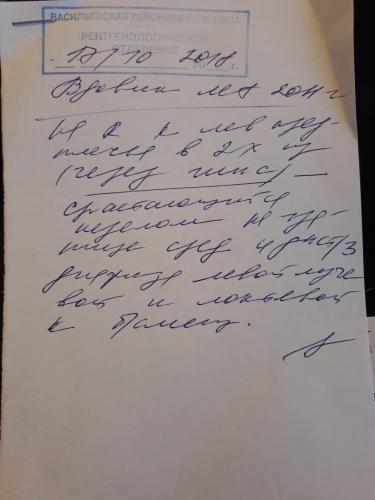 ВАСИЛЬЕВСКАЯ РАЙОННАЯ БОЛЬНИЦА
РЕНТГЕНОЛОГИЧЕСКОЕ
ОТДЕЛЕНИЕ
17/10 2018 г.
2011 г
На R к лев пред-
плечья в 2х пр
(через гипс) —
срастающийся
перелом на гра-
нице сред и дист/3
диафиза левой луче-
вой и локтевой
к